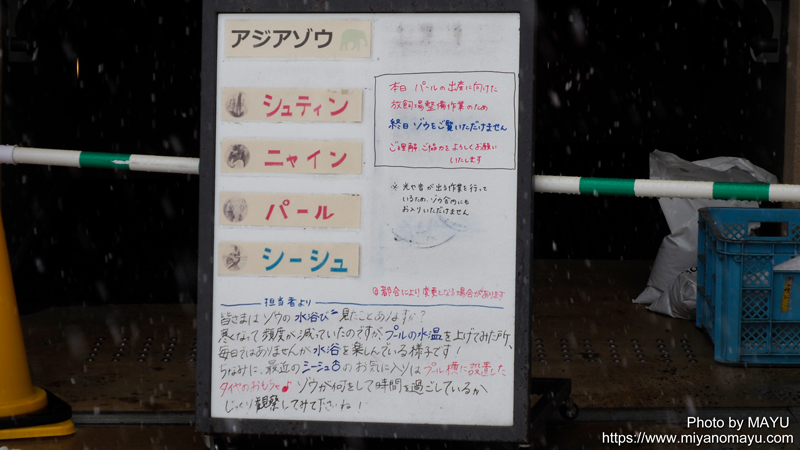 アジアゾウ
シュティン
ニャイン
パール
シーシュ
本日 パールの出産に向けた
放飼場整備作業のため
終日 ゾウをご覧いただけません
ご理解 ご協力をよろしくお願い
いたします
※ 光や音が出る作業を行って
いるため、ゾウ舎内にも
お入りいただけません
◎都合により変更になる場合があります
担当者より
皆さまは ゾウの 水浴び 見たことありますか？
寒くなって 頻度が 減っていたのですが、プールの水温を上げてみた所、
毎日ではありませんが 水浴を楽しんでいる様子です！
ちなみに、最近の シーシュ♂のお気に入りは プール横に設置した
タイヤのおもちゃ♪ ゾウが何をして時間を過ごしているか
じっくり観察してみて下さいね！
Photo by MAYU
https://www.miyanomayu.com